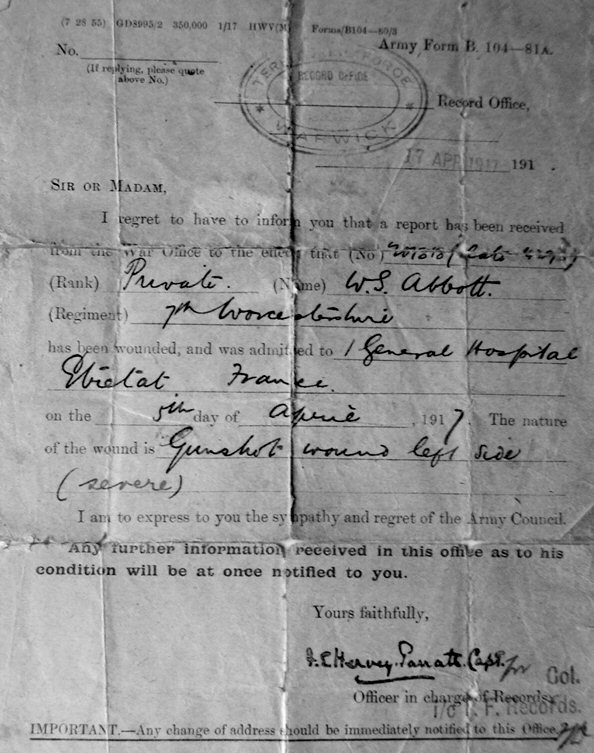 (7 28 55) GD8995/2 350,000 1/17 HWV(M) Forms/B104—80/3
No. Army Form B. 104—81A.
(If replying, please quote
above No.)
TERRITORIAL FORCE
RECORD OFFICE
WARWICK
Record Office,
17 APR 1917 191 .
SIR OR MADAM,
I regret to have to inform you that a report has been received
from the War Office to the effect that (No.)
(Rank) Private. (Name) W.S. Abbott.
(Regiment) 7th Worcestershire
has been wounded, and was admitted to 1 General Hospital
Etretat France.
on the 5th day of April , 1917. The nature
of the wound is Gunshot wound left side
(severe)
I am to express to you the sympathy and regret of the Army Council.
Any further information received in this office as to his
condition will be at once notified to you.
Yours faithfully,
Hervey Parratt. Capt. for Col.
Officer in charge of Records.
i/c T. F. Records.
IMPORTANT.—Any change of address should be immediately notified to this Office.